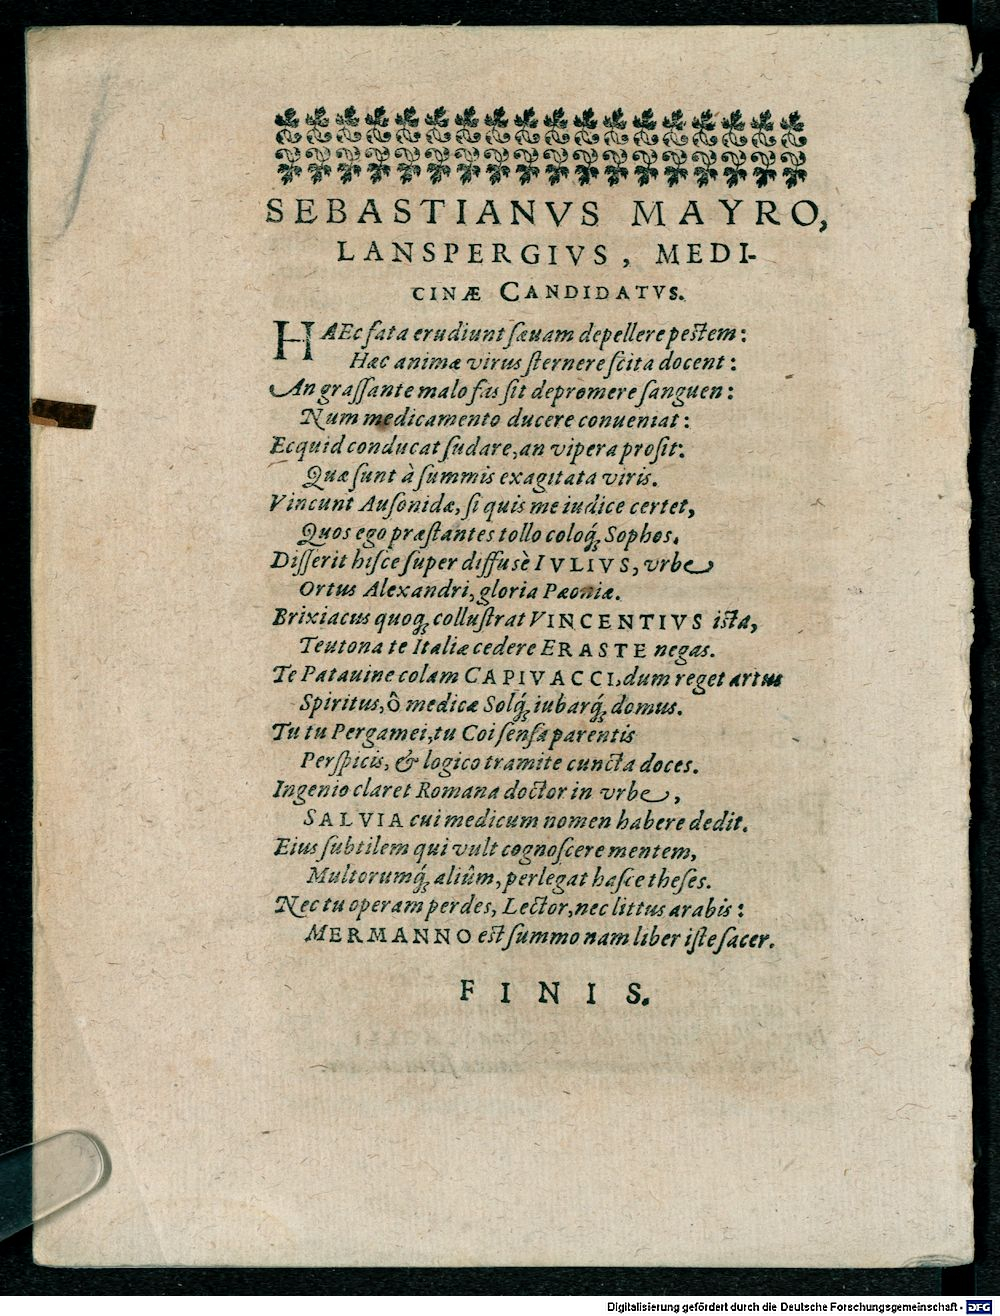 SEBASTIANVS MAYRO,
LANSPERGIVS, MEDI-
CINÆ CANDIDATVS.
HAEc fata erudiunt sæuam depellere pestem:
Hæc animæ virus sternere scita docent:
An grassante malo fas sit depromere sanguen:
Num medicamento ducere conueniat:
Ecquid conducat sudare, an vipera prosit:
Quæ sunt à summis exagitata viris.
Vincunt Ausonidæ, si quis me iudice certet,
Quos ego præstantes tollo coloq́; Sophos.
Disserit hisce super diffusè IVLIVS, vrbe
Ortus Alexandri, gloria Pæoniæ.
Brixiacus quoq; collustrat VINCENTIVS ista,
Teutona te Italiæ cedere ERASTE negas.
Te Patauine colam CAPIVACCI, dum reget artus
Spiritus, ô medicæ Solq́; iubarq́; domus.
Tu tu Pergamei, tu Coi sensa parentis
Perspicis, & logico tramite cuncta doces.
Ingenio claret Romana doctor in vrbe,
SALVIA cui medicum nomen habere dedit.
Eius subtilem qui vult cognoscere mentem,
Multorumq́; aliûm, perlegat hasce theses.
Nec tu operam perdes, Lector, nec littus arabis:
MERMANNO est summo nam liber iste sacer.
FINIS.
Digitalisierung gefördert durch die Deutsche Forschungsgemeinschaft - DFG